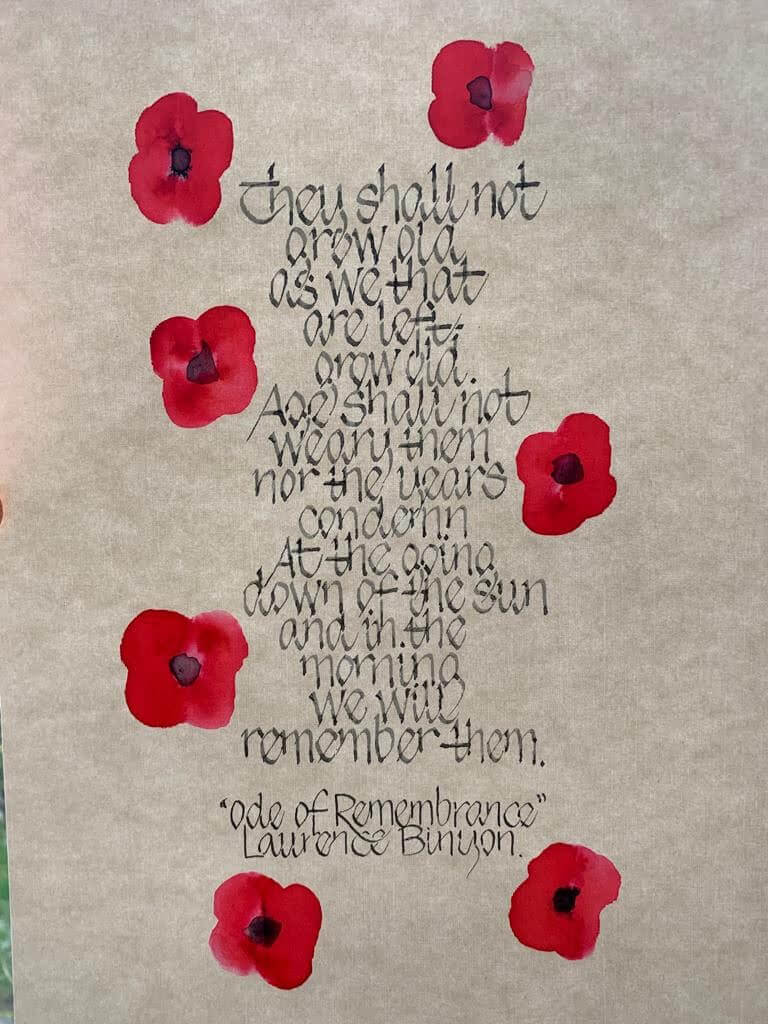 They shall not
grow old
as we that
are left
grow old.
Age shall not
weary them
nor the years
condemn
At the going
down of the sun
and in the
morning
we will
remember them.
"Ode of Remembrance"
Laurence Binyon.